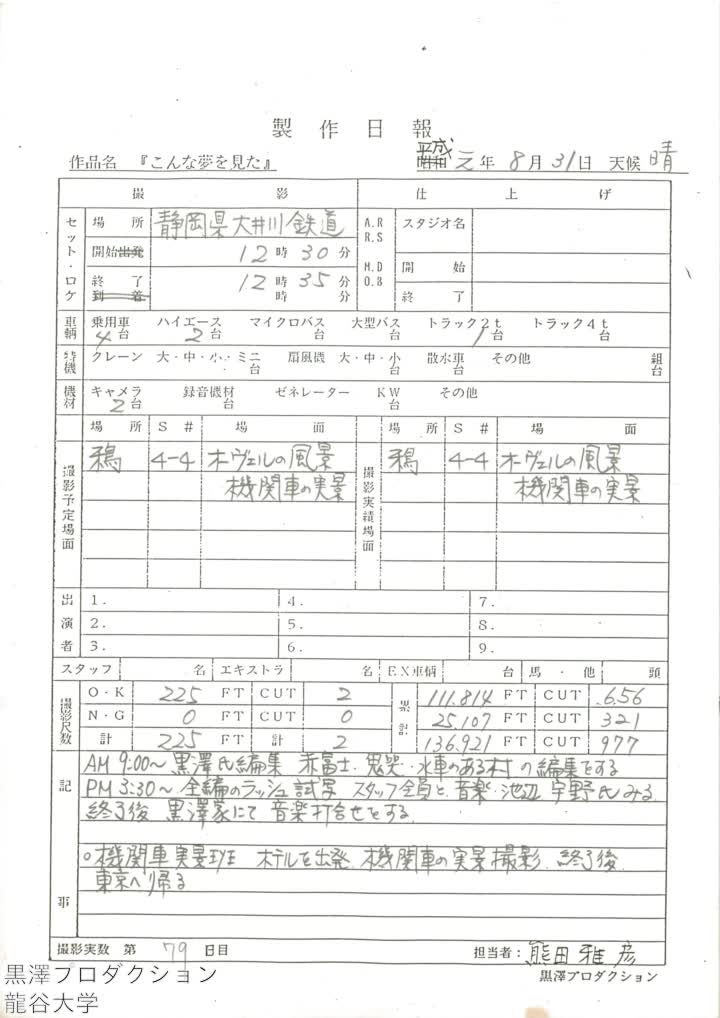 製作日報
作品名 『こんな夢を見た』 昭和 平成 元年 8月 31日 天候 晴
撮影 仕上げ
セット・ロケ 場所 静岡県大井川鉄道 A.R R.S スタジオ名
開始出発 12時30分 M.D O.B 開始
終了 12時35分 終了
到着 時 分
車輌 乗用車 4台 ハイエース 2台 マイクロバス 台 大型バス 台 トラック2t 1台 トラック4t 台
特機 クレーン 大・中・小・ミニ 台 扇風機 大・中・小 台 散水車 台 その他 組 台
機材 キャメラ 2台 録音機材 台 ゼネレーター KW 台 その他
場所 S# 場面 場所 S# 場面
撮影予定場面 鴉 4-4 オーヴェルの風景 撮影実績場面 鴉 4-4 オーヴェルの風景
機関車の実景 機関車の実景
出演者 1. 4. 7.
2. 5. 8.
3. 6. 9.
スタッフ 名 エキストラ 名 EX車輌 台 馬・他 頭
撮影尺数 O・K 225 FT CUT 2 累計 111.814 FT CUT 656
N・G 0 FT CUT 0 25.107 FT CUT 321
計 225 FT 計 2 136.921 FT CUT 977
記事
AM 9:00〜 黒澤氏編集 赤富士・鬼哭・水車のある村の編集をする
PM 3:30〜 全編のラッシュ試写 スタッフ全員と音楽・池辺 宇野氏みる
終了後 黒澤家にて音楽打合せをする
○機関車実景班 ホテルを出発、機関車の実景撮影、終了後
東京へ帰る
撮影実数 第 79 日目 担当者:熊田雅彦
黒澤プロダクション
黒澤プロダクション
龍谷大学